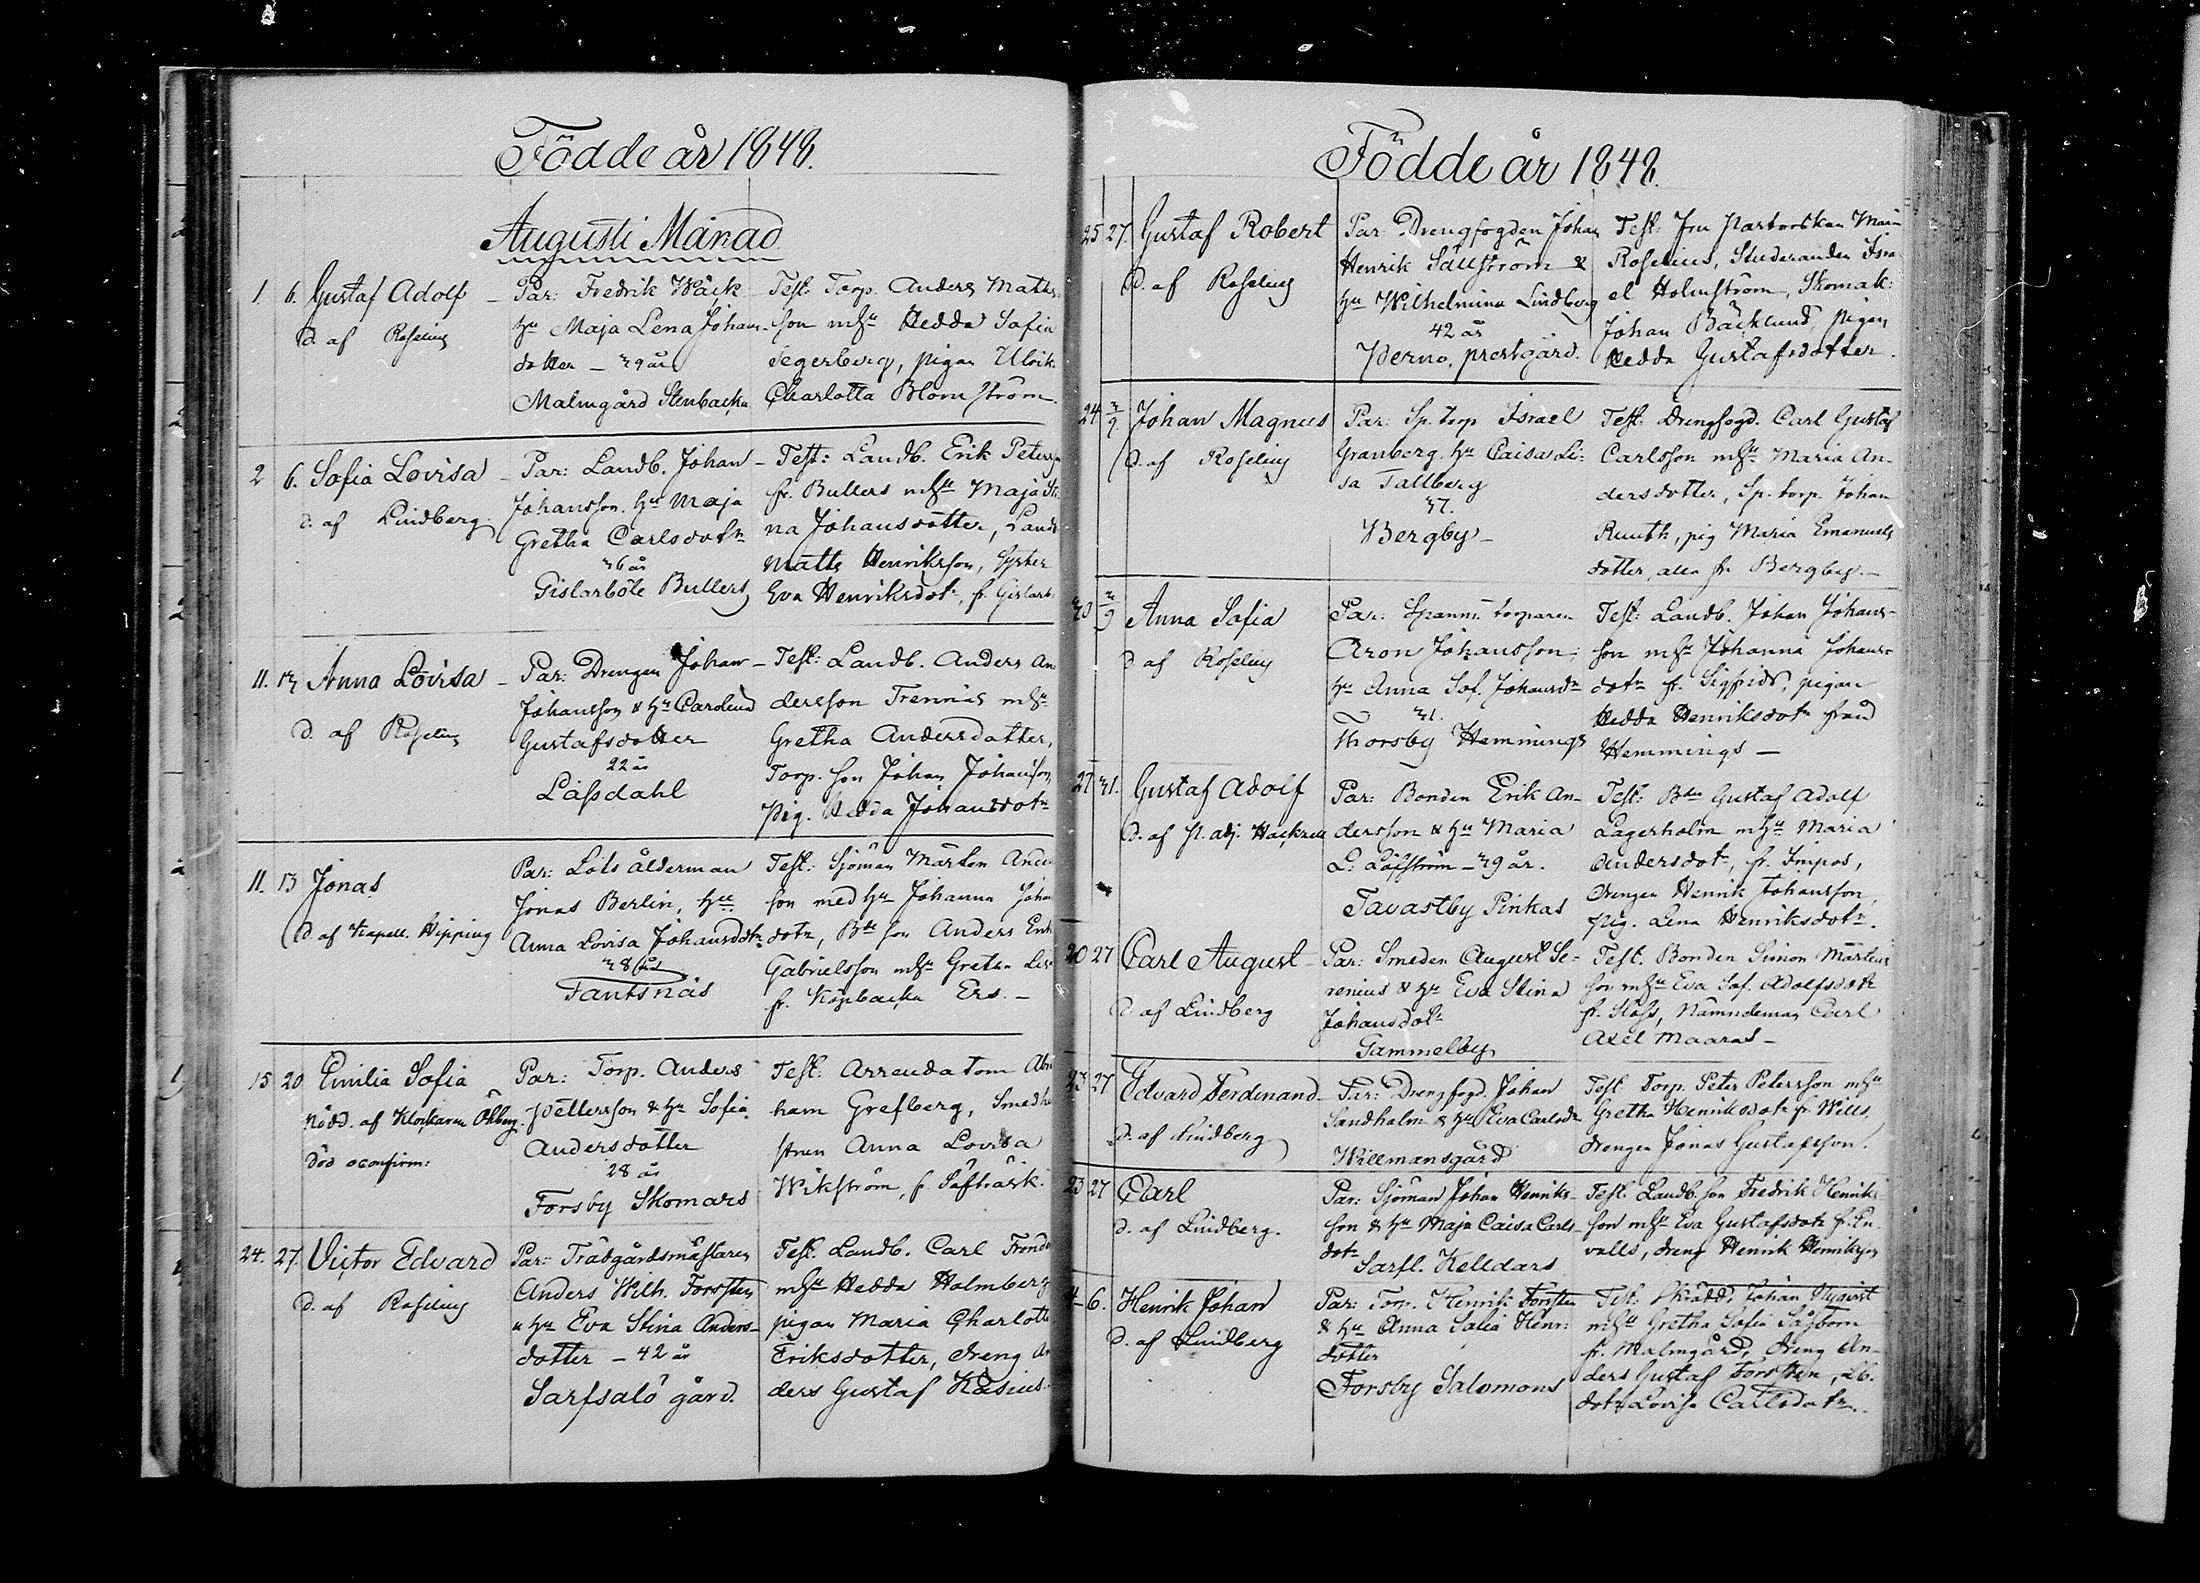 Födde år 1848.
Augusti Månad
1. 6. Gustaf Adolf
d. af Roselius
Par: Fredrik Wäck
hu Maja Lena Johans-
dotter – 39 år
Malmgård Stenbacka
Test. Torp. Anders Mats-
son mhu Hedda Sofia
Segerberg, pigan Ulrik.
Charlotta Blomström.
2 6. Sofia Lovisa
d. af Lindberg
Par: Landb. Johan
Johansson, hu Maja
Gretha Carlsdotr
36 år
Gislarböle Bullers
Test: Landb. Erik Petersson
fr. Bullers mhu Maja Sti-
na Johansdotter, Landb
Matts Henriksson, syster
Eva Henriksdotr, fr. Gislarb.
11. 13 Anna Lovisa
d. af Roselius
Par: Drengen Johan
Johansson & hu Carolina
Gustafsdotter
22 år
Låssdahl
Test: Landb. Anders An-
dersson Trennäs mhu
Gretha Andersdotter,
Torp. son Johan Johansson
pig. Hedda Johansdotr
11. 13 Jonas
d. af Kapell. Hipping
Par: Lots ålderman
Jonas Berlin, hu
Anna Lovisa Johansdotr
38 år
Tantsnäs
Test: Sjöman Mårten Ander
son med hu Johanna Joha
dotr, Bde son Anders Erik
Gabrielsson mhu Gretha Lis
fr. Köpbacka Ers. –
15 20 Emilia Sofia
Nödd. af Klockaren Öhberg.
död oconfirm:
Par: Torp. Anders
Pettersson & hu Sofia
Andersdotter
28 år
Forsby Skomars
Test: Arrendatorn Abra
ham Grefberg, Smedhu
strun Anna Lovisa
Wikström, f. Säfträsk.
24. 27. Victor Edvard
d. af Roselius
Par: Trädgårdsmästaren
Anders Wilh. Forsten
& hu Eva Stina Anders-
dotter – 42 år
Sarfsalö gård.
Test: Landb. Carl
mhu Hedda Holmberg
pigan Maria Charlotta
Eriksdotter, dreng An
ders Gustaf Kasius
Födde år 1848.
25 27. Gustaf Robert
d. af Roselius
Par: Drengfogden Johan
Henrik Sällström &
hu Wilhelmina Lindberg
42 år
Perno, prestgård.
Test: Fru Pastorskan Maria
Roselius, Studeranden Isra-
el Holmström, Skomak:
Johan Bäcklund, pigan
Hedda Gustafsdotter.
24 3/9 Johan Magnus
d. af Roselius
Par: Sp. torp Israel
Granberg, hu Caisa Li-
sa Tallberg
37.
Bergby –
Test: drengfogd. Carl Gustaf
Carlsson mhu Maria An-
dersdotter, Sp. torp. Johan
Ruuth, pig Maria Emanuels
dotter, alla fr. Bergby. –
30 3/9 Anna Sofia
d. af Roselius
Par: Spannm torparen
Aron Johansson,
hu Anna Sof. Johansdr
31.
Thorsby Hemmings
Test: Landb. Johan Johans-
son mhu Johanna Johans-
dotr fr. Sigfrids, pigan
Hedda Henriksdotr från
Hemmings –
27 31. Gustaf Adolf
d. af p. adj. Hackzell
Par: Bonden Erik An-
dersson & hu Maria
L: Löfström – 39 år.
Tavastby Pinkas
Test: Bdn Gustaf Adolf
Lagerholm mhu Maria
Andersdotr, fr. Impos,
drengen Henrik Johansson,
pig. Lena Henriksdotr.
20 27 Carl August
d. af Lindberg
Par: Smeden August Se-
renius & hu Eva Stina
Johansdotr
Gammelby
Test. Bonden Simon Mårtens
son mhu Eva Sof. Adolfsdotr
fr. Nämndeman Carl
Axel Maaras –
23 27 Edvard Ferdinand
d. af Lindberg
Par: Drengfogd. Johan
Sandholm & hu Eva Carlsdr
Willmansgård
Test Torp. Peter Petersson mhu
Gretha Henriksdotr fr. Wills,
drengen Jonas Gustafsson.
23 27 Carl
d. af Lindberg.
Par: Sjöman Johan Henriks-
son & hu Maja Caisa Carls
dotr
Sarfl. Kelldars
Test. Landb. son Fredrik Henriks
son mhu Eva Gustafsdotr fr. En-
valls, dreng Henrik Henriksson
4 6. Henrik Johan
d. af Lindberg
Par: Torp. Henrik Forsten
& hu Anna Salia Henr:
dotter
Forsby Salomons
Test: Skrädd. Johan Nyqvist
mhu Gretha Sofia Sågbom
fr. Malmgård, dreng An-
ders Gustaf Forsten, Lb.
dotr Lovisa Carlsdotr.